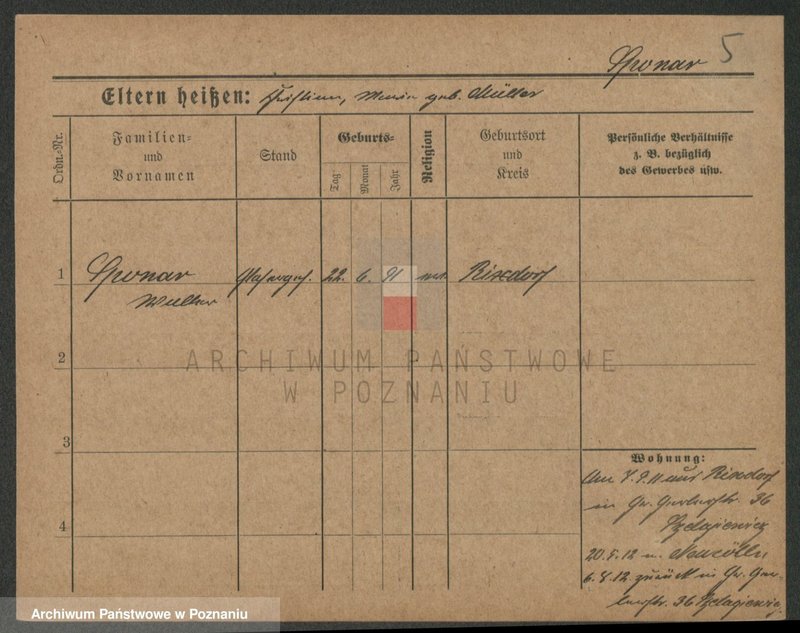 Sponar 5
Eltern heißen: Christian, Maria geb. Müller
Ordn.-Nr.
Familien-
und
Vornamen
Stand
Geburts-
Tag
Monat
Jahr
Religion
Geburtsort
und
Kreis
Persönliche Verhältnisse
z. B. bezüglich
des Gewerbes usw.
1 Sponar 22. 6. 91 Rixdorf
2
ARCHIWUM PAŃSTWOWE
W POZNANIU
3
Wohnung:
Am 7.9.11 aus Rixdorf
in Gr. Gerberstr. 36
Szelagiewicz
4
20.5.12 n. Neucölln
6.8.12 zurück in Gr. Ger-
berstr. 36 Szelagiewicz
Archiwum Państwowe w Poznaniu